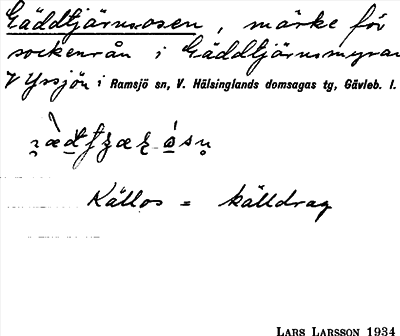 Gäddtjärnsosen, märke för
sockenrån i Gäddtjärnsmyran
V Yrsjön i Ramsjö sn, V. Hälsinglands domsagas tg, Gävleb. l.
Källos = källdrag
LARS LARSSON 1934